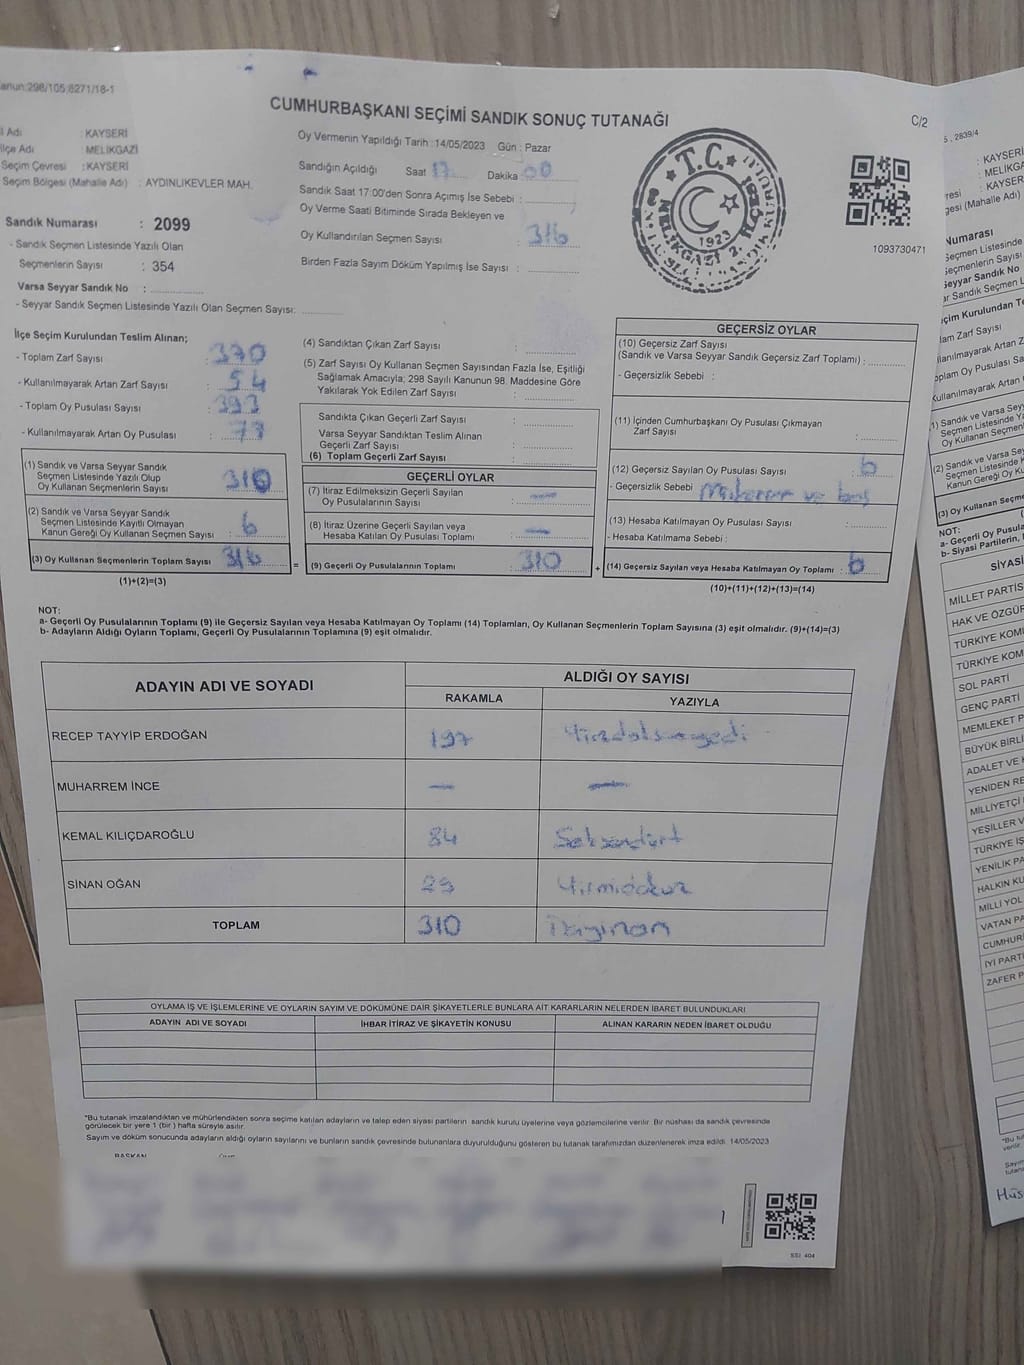 anun:298/105;8271/18-1
CUMHURBAŞKANI SEÇİMİ SANDIK SONUÇ TUTANAĞI
C/2
l Adı : KAYSERİ
İlçe Adı : MELİKGAZİ
Seçim Çevresi : KAYSERİ
Seçim Bölgesi (Mahalle Adı) : AYDINLIKEVLER MAH.
Oy Vermenin Yapıldığı Tarih : 14/05/2023 Gün : Pazar
Sandığın Açıldığı Saat 17 Dakika 00
Sandık Saat 17:00'den Sonra Açımış İse Sebebi :
Oy Verme Saati Bitiminde Sırada Bekleyen ve
Oy Kullandırılan Seçmen Sayısı : 316
Birden Fazla Sayım Döküm Yapılmış İse Sayısı :
T.C.
MELİKGAZİ 2. İLÇESİ
1923
1093730471
Sandık Numarası : 2099
- Sandık Seçmen Listesinde Yazılı Olan
Seçmenlerin Sayısı : 354
Varsa Seyyar Sandık No :
- Seyyar Sandık Seçmen Listesinde Yazılı Olan Seçmen Sayısı:
İlçe Seçim Kurulundan Teslim Alınan;
- Toplam Zarf Sayısı : 370
- Kullanılmayarak Artan Zarf Sayısı : 54
- Toplam Oy Pusulası Sayısı : 393
- Kullanılmayarak Artan Oy Pusulası : 77
(1) Sandık ve Varsa Seyyar Sandık
Seçmen Listesinde Yazılı Olup
Oy Kullanan Seçmenlerin Sayısı : 310
(2) Sandık ve Varsa Seyyar Sandık
Seçmen Listesinde Kayıtlı Olmayan
Kanun Gereği Oy Kullanan Seçmen Sayısı : 6
(3) Oy Kullanan Seçmenlerin Toplam Sayısı : 316
(1)+(2)=(3)
(4) Sandıktan Çıkan Zarf Sayısı :
(5) Zarf Sayısı Oy Kullanan Seçmen Sayısından Fazla İse, Eşitliği
Sağlamak Amacıyla; 298 Sayılı Kanunun 98. Maddesine Göre
Yakılarak Yok Edilen Zarf Sayısı :
Sandıkta Çıkan Geçerli Zarf Sayısı :
Varsa Seyyar Sandıktan Teslim Alınan
Geçerli Zarf Sayısı :
(6) Toplam Geçerli Zarf Sayısı :
GEÇERLİ OYLAR
(7) İtiraz Edilmeksizin Geçerli Sayılan
Oy Pusulalarının Sayısı : —
(8) İtiraz Üzerine Geçerli Sayılan veya
Hesaba Katılan Oy Pusulası Toplamı : —
= (9) Geçerli Oy Pusulalarının Toplamı : 310
GEÇERSİZ OYLAR
(10) Geçersiz Zarf Sayısı
(Sandık ve Varsa Seyyar Sandık Geçersiz Zarf Toplamı) :
- Geçersizlik Sebebi :
(11) İçinden Cumhurbaşkanı Oy Pusulası Çıkmayan
Zarf Sayısı :
(12) Geçersiz Sayılan Oy Pusulası Sayısı : 6
- Geçersizlik Sebebi : Mükerrer ve boş
(13) Hesaba Katılmayan Oy Pusulası Sayısı :
- Hesaba Katılmama Sebebi :
+ (14) Geçersiz Sayılan veya Hesaba Katılmayan Oy Toplamı : 6
(10)+(11)+(12)+(13)=(14)
NOT:
a- Geçerli Oy Pusulalarının Toplamı (9) ile Geçersiz Sayılan veya Hesaba Katılmayan Oy Toplamı (14) Toplamları, Oy Kullanan Seçmenlerin Toplam Sayısına (3) eşit olmalıdır. (9)+(14)=(3)
b- Adayların Aldığı Oyların Toplamı, Geçerli Oy Pusulalarının Toplamına (9) eşit olmalıdır.
ADAYIN ADI VE SOYADI ALDIĞI OY SAYISI
RAKAMLA YAZIYLA
RECEP TAYYİP ERDOĞAN 197
MUHARREM İNCE — —
KEMAL KILIÇDAROĞLU 84 Seksendört
SİNAN OĞAN 29 Yirmidokuz
TOPLAM 310
OYLAMA İŞ VE İŞLEMLERİNE VE OYLARIN SAYIM VE DÖKÜMÜNE DAİR ŞİKAYETLERLE BUNLARA AİT KARARLARIN NELERDEN İBARET BULUNDUKLARI
ADAYIN ADI VE SOYADI İHBAR İTİRAZ VE ŞİKAYETİN KONUSU ALINAN KARARIN NEDEN İBARET OLDUĞU
*Bu tutanak imzalandıktan ve mühürlendikten sonra seçime katılan adayların ve talep eden siyasi partilerin sandık kurulu üyelerine veya gözlemcilerine verilir. Bir nüshası da sandık çevresinde
görülecek bir yere 1 (bir ) hafta süreyle asılır.
Sayım ve döküm sonucunda adayların aldığı oyların sayılarını ve bunların sandık çevresinde bulunanlara duyurulduğunu gösteren bu tutanak tarafımızdan düzenlenerek imza edildi. 14/05/2023
BAŞKAN
SSI 404
5 , 2839/4
: KAYSERİ
: MELİKGAZ
: KAYSERİ
Numarası
NOT:
MİLLET PARTİS
HAK VE ÖZGÜR
TÜRKİYE KOMÜ
TÜRKİYE KOM
SOL PARTİ
GENÇ PARTİ
MEMLEKET P
BÜYÜK BİRLİ
ADALET VE K
YENİDEN RE
MİLLİYETÇİ
YEŞİLLER V
TÜRKİYE İŞ
YENİLİK PA
HALKIN KU
MİLLİ YOL
VATAN PA
CUMHURİ
İYİ PARTİ
ZAFER P